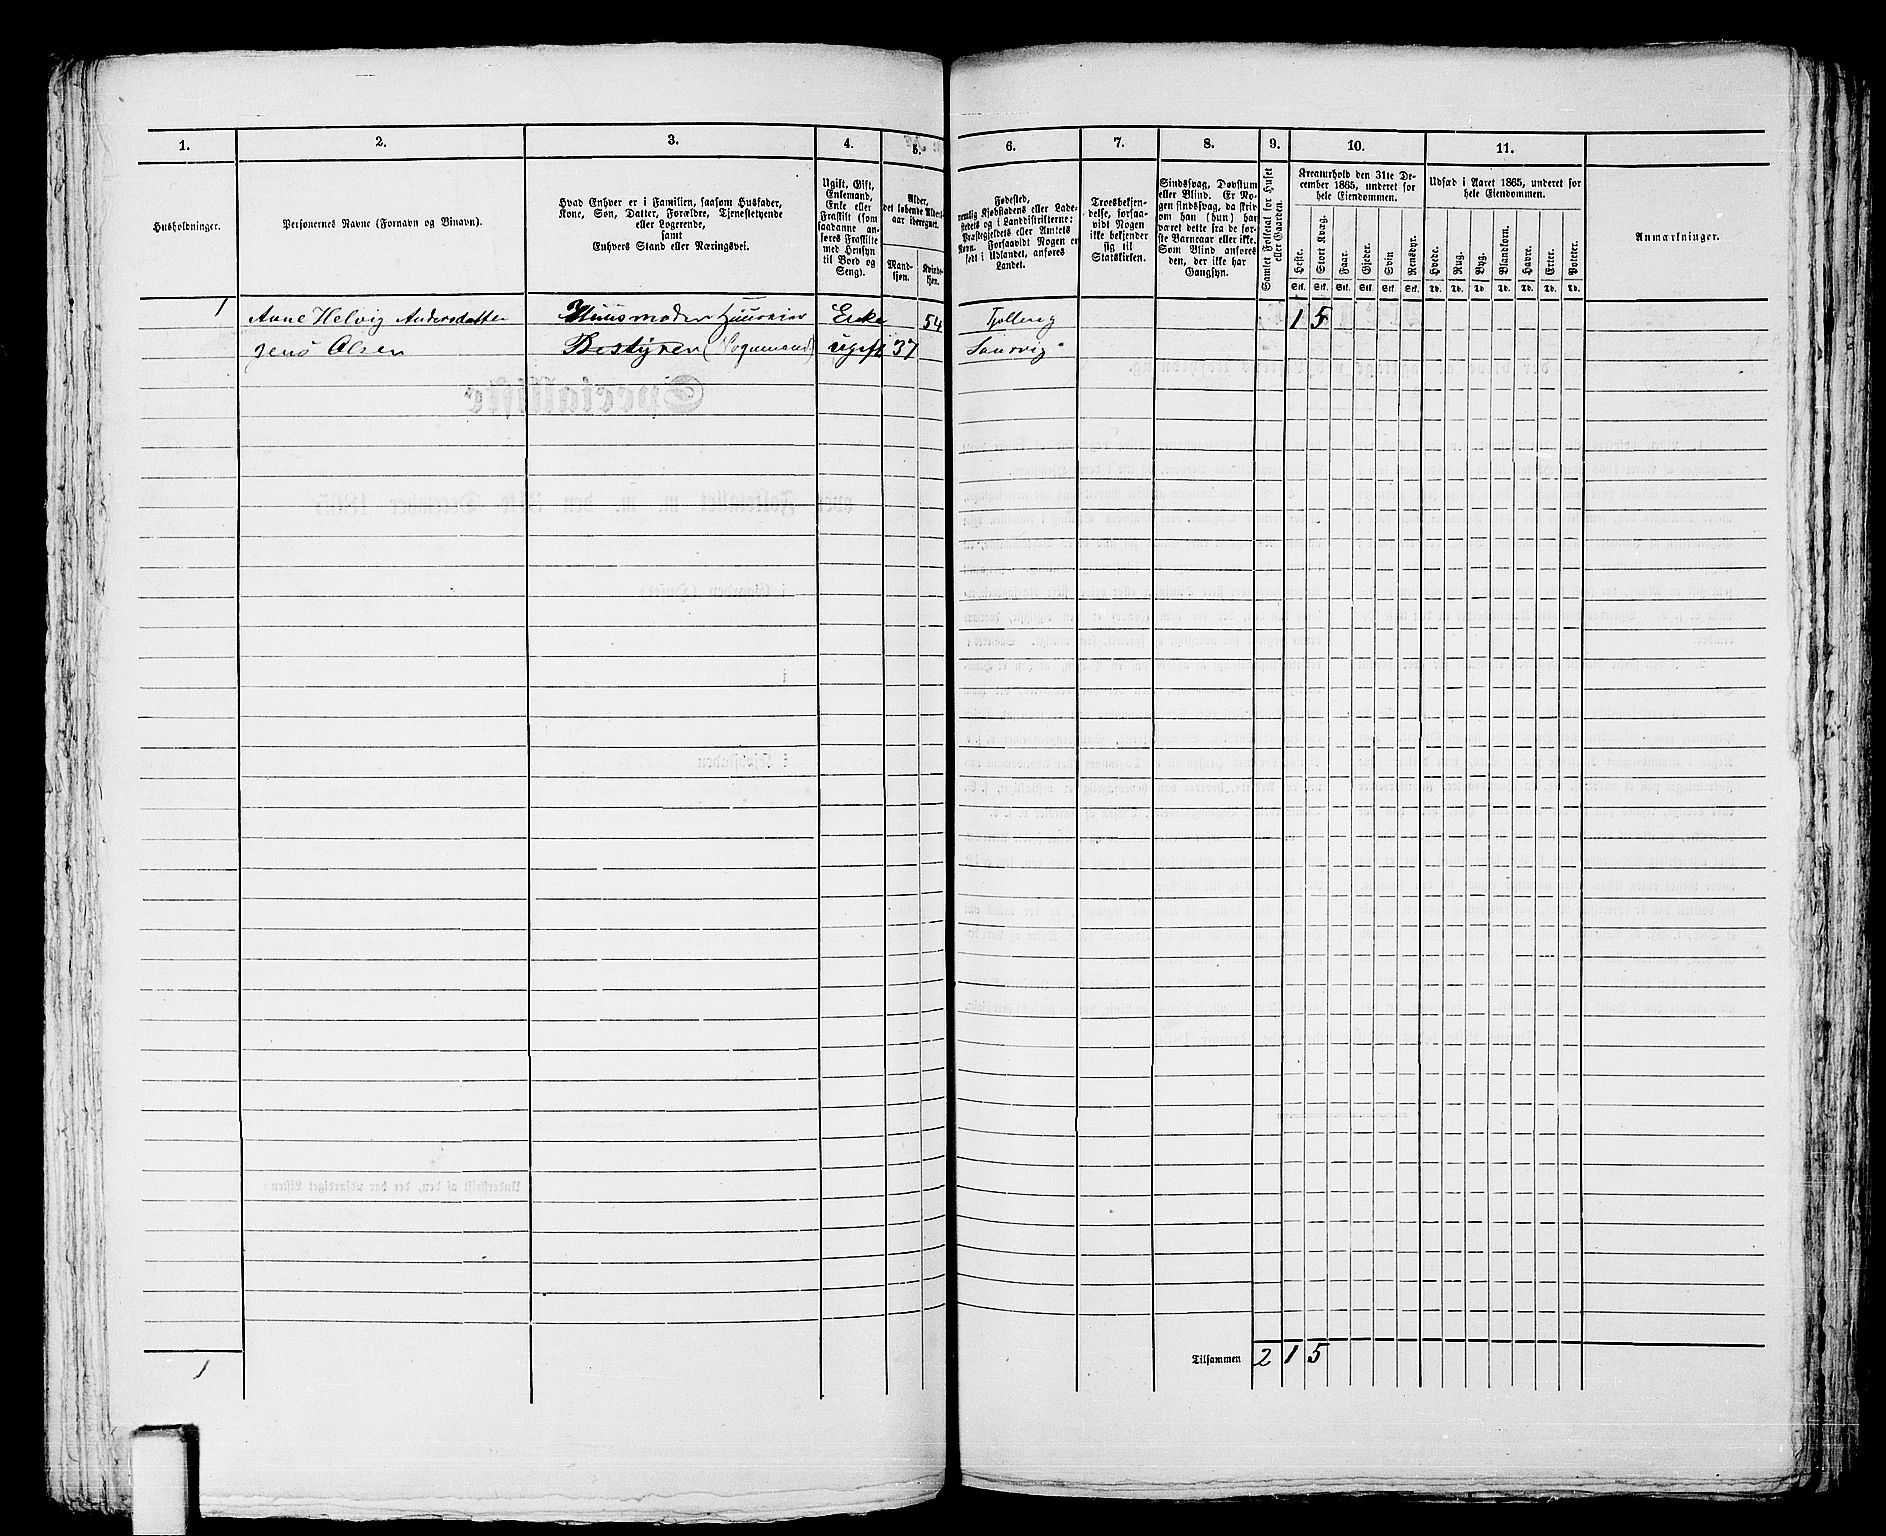 1. 2. 3. 4. 5. 6. 7. 8. 9. 10. 11.
Husholdninger.
Personernes Navne (Fornavn og Binavn).
Hvad Enhver er i Familien, saasom Husfader,
Kone, Søn, Datter, Forældre, Tjenestetyende
eller Logerende,
samt
Enhvers Stand eller Næringsvei.
Ugift, Gift,
Enkemand,
Enke eller
Fraskilt (som
saadanne an-
føres Fraskilte
med Hensyn
til Bord og
Seng).
Alder,
det løbende Alders-
aar iberegnet.
Mand-
kjøn.
Kvinde-
kjøn.
Fødested,
nemlig Kjøbstadens eller Lade-
stedets og i Landdistrikterne:
Præstegjeldets eller Amtets
Navn. Forsaavidt Nogen er
født i Udlandet, anføres
Landet.
Troesbekjen-
delse, forsaa-
vidt Nogen
ikke bekjender
sig til
Statskirken.
Sindssvag, Døvstum
eller Blind. Er No-
gen sindssvag, da skriv
om han (hun) har
været dette fra de før-
ste Barneaar eller ikke.
Som Blind anføres
den, der ikke har
Gangsyn.
Samlet Folketal for Huset
eller Gaarden.
Kreaturhold den 31te De-
cember 1865, underet for
hele Eiendommen.
Heste.
Stort Kvæg.
Faar.
Gjeder.
Svin
Rensdyr.
Stk. Stk. Stk. Stk. Stk. Stk.
Udsæd i Aaret 1865, underet for
hele Eiendommen.
Hvede.
Rug.
Byg.
Blandkorn.
Havre.
Erter.
Poteter.
Td. Td. Td. Td. Td. Td. Td.
Anmærkninger.
1 Anne Helvig Andersdatter Huusmoder Enke 54 Tjølling 1 5
Jens Olsen Bestyrer (Vognmand) ugift 37 Laurvig
1 Tilsammen 2 1 5